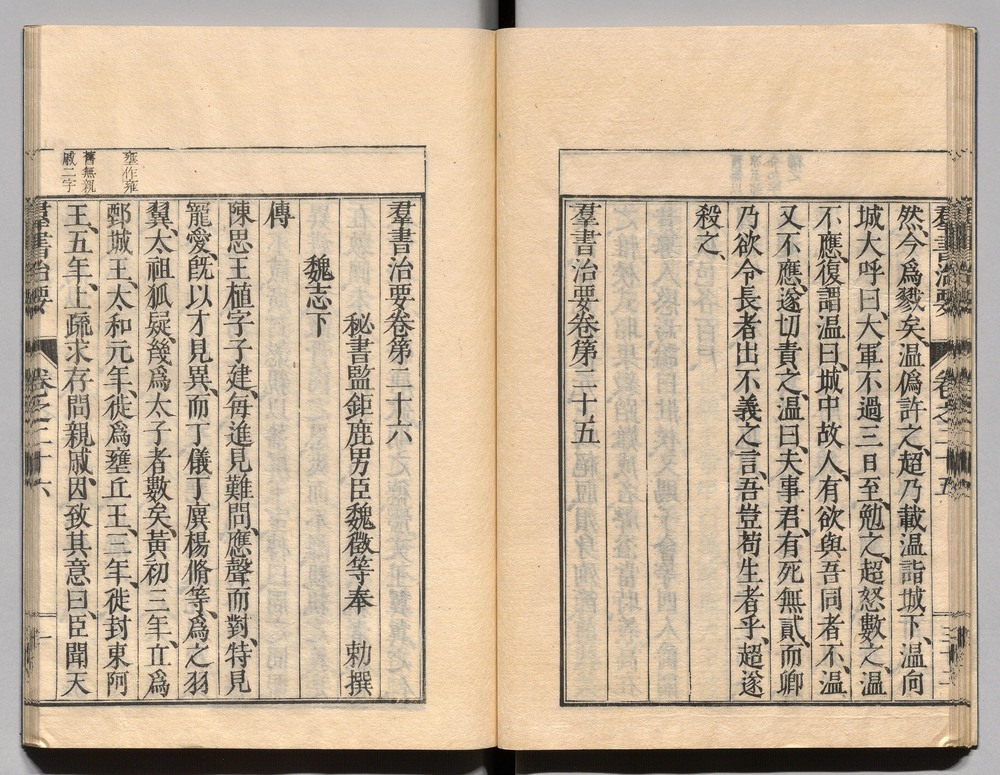 羣書治要 卷之二十五
然、今爲戮矣、温僞許之、超乃載温詣城下、温向
城大呼曰、大軍不過三日至、勉之、超怒數之、温
不應、復謂温曰、城中故人、有欲與吾同者不、温
又不應、遂切責之、温曰、夫事君、有死無貳、而卿
乃欲令長者出不義之言、吾豈苟生者乎、超遂
殺之、
羣書治要卷第二十五
羣書治要卷第二十六
秘書監鉅鹿男臣魏徵等奉 勅撰
魏志下
傳
陳思王植字子建、每進見難問、應聲而對、特見
寵愛、旣以才見異、而丁儀丁廙楊脩等、爲之羽
翼、太祖狐疑、幾爲太子者數矣、黃初三年、立爲
鄄城王、太和元年、徙爲壅丘王、三年、徙封東阿
王、五年、上疏求存問親戚、因致其意曰、臣聞天
壅作雍
舊無親
戚二字
羣書治要 卷之二十六